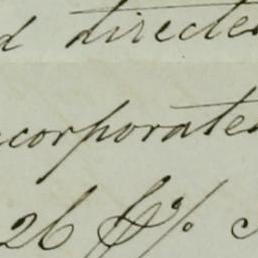 d directed
ncorporated
26